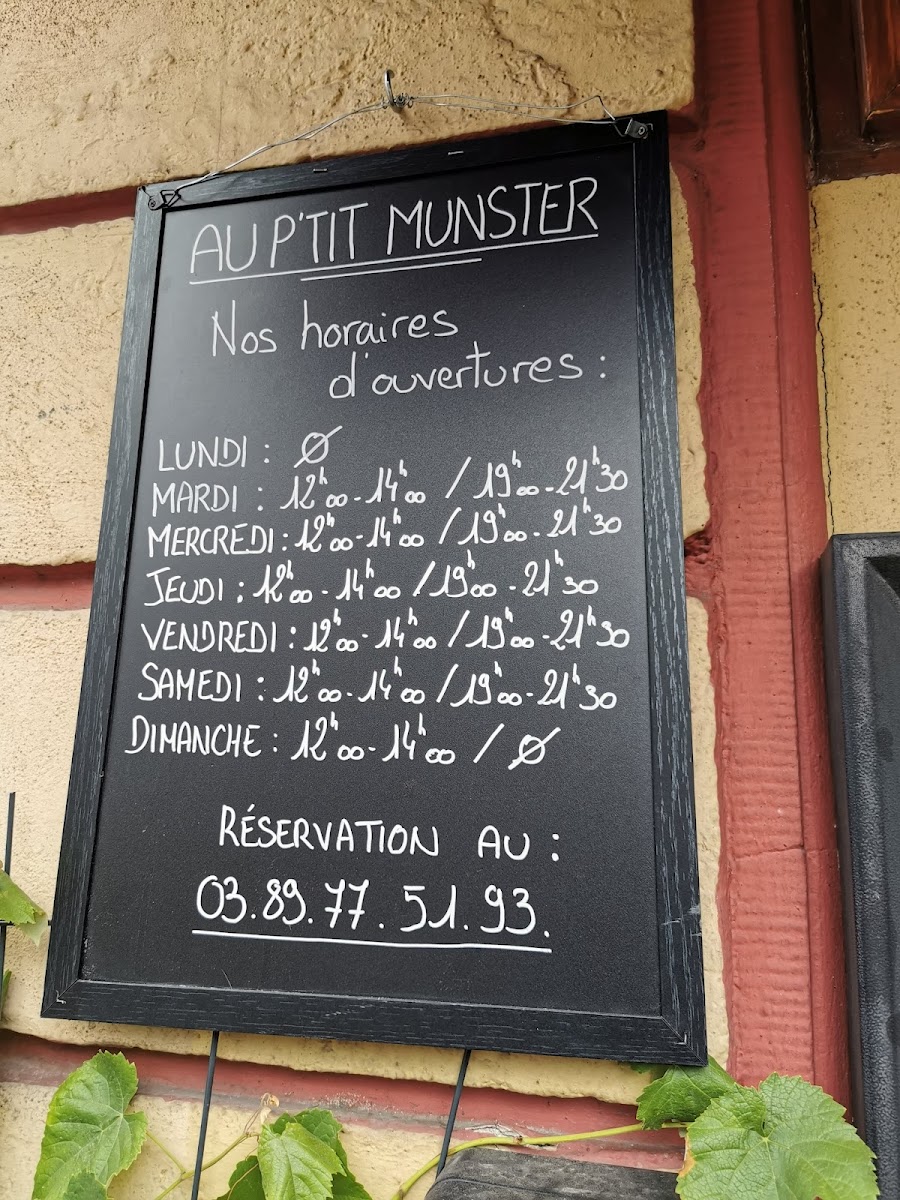 AU P'TIT MUNSTER
Nos horaires
d'ouvertures :
LUNDI : Ø
MARDI : 12h00-14h00 / 19h00-21h30
MERCREDI : 12h00-14h00 / 19h00-21h30
JEUDI : 12h00-14h00 / 19h00-21h30
VENDREDI : 12h00-14h00 / 19h00-21h30
SAMEDI : 12h00-14h00 / 19h00-21h30
DIMANCHE : 12h00-14h00 / Ø
RÉSERVATION AU :
03.89.77.51.93.